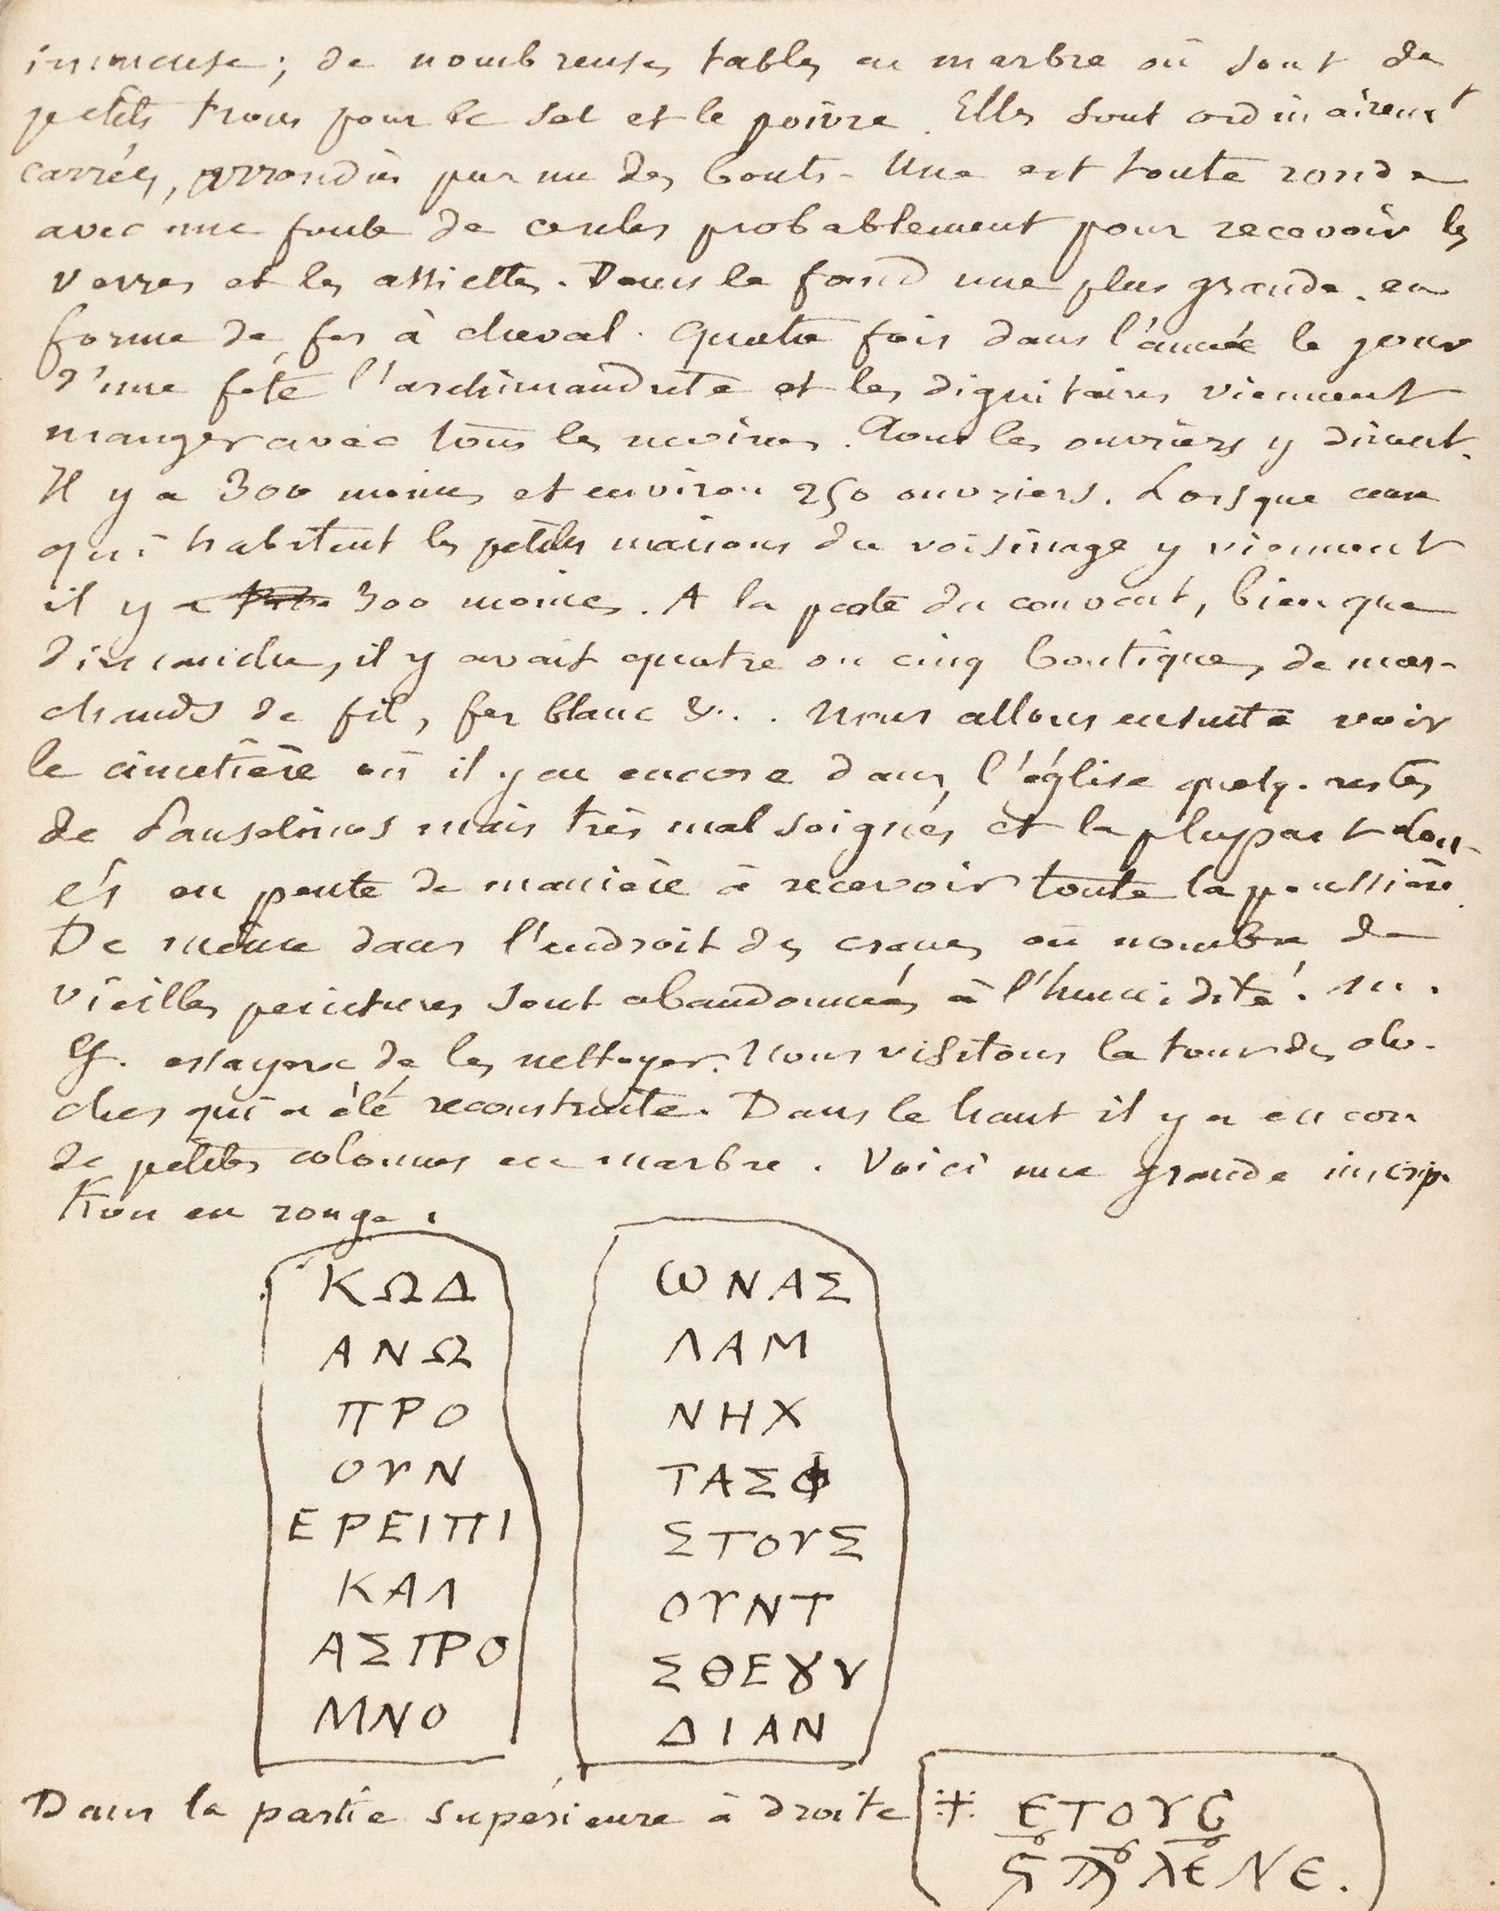 immense; de nombreuses tables en marbre où sont de
petits trous pour le sel et le poivre. Elles sont ordinairemt
carrées, arrondies par un des bouts. Une est toute ronde
avec une foule de cercles probablement pour recevoir les
verres et les assiettes. Dans le fond une plus grande en
forme de fer à cheval. Quatre fois dans l'année le jour
d'une fête l'archimandrite et les dignitaires viennent
manger avec tous les moines. Tous les ouvriers y dinent.
Il y a 300 moines et environ 250 ouvriers. Lorsque ceux
qui habitent les petites maisons du voisinage y viennent
il y a 300 moines. A la porte du couvent, bien que
dimanche, il y avait quatre ou cinq boutiques de mar-
chands de fil, fer blanc &. . Nous allons ensuite voir
le cimetière où il y en encore dans l'église quelq. restes
de Panselinos mais très mal soignés et la plupart
en pente de manière à recevoir toute la poussière.
De même dans l'endroit des cranes où nombre de
vieilles peintures sont abandonnées à l'humidité. M.
G. essayera de les nettoyer. Nous visitons la tour des clo-
ches qui a été reconstruite. Dans le haut il y a encore
de petites colonnes en marbre. Voici une grande inscrip-
tion en rouge.
ΚΩΔ
ΑΝΩ
ΠΡΟ
ΟΥΝ
ΕΡΕΙΠΙ
ΚΑΛ
ΑΣΠΡΟ
ΜΝΟ
ωΝΑΣ
ΛΑΜ
ΝΗΧ
ΤΑΣΦ
ΣΤΟΥΣ
ΟΥΝΤ
ΣΘΕȣΥ
ΔΙΑΝ
Dans la partie supérieure à droite ⁜ ЄΤΟΥϹ
ΛЄΝЄ.